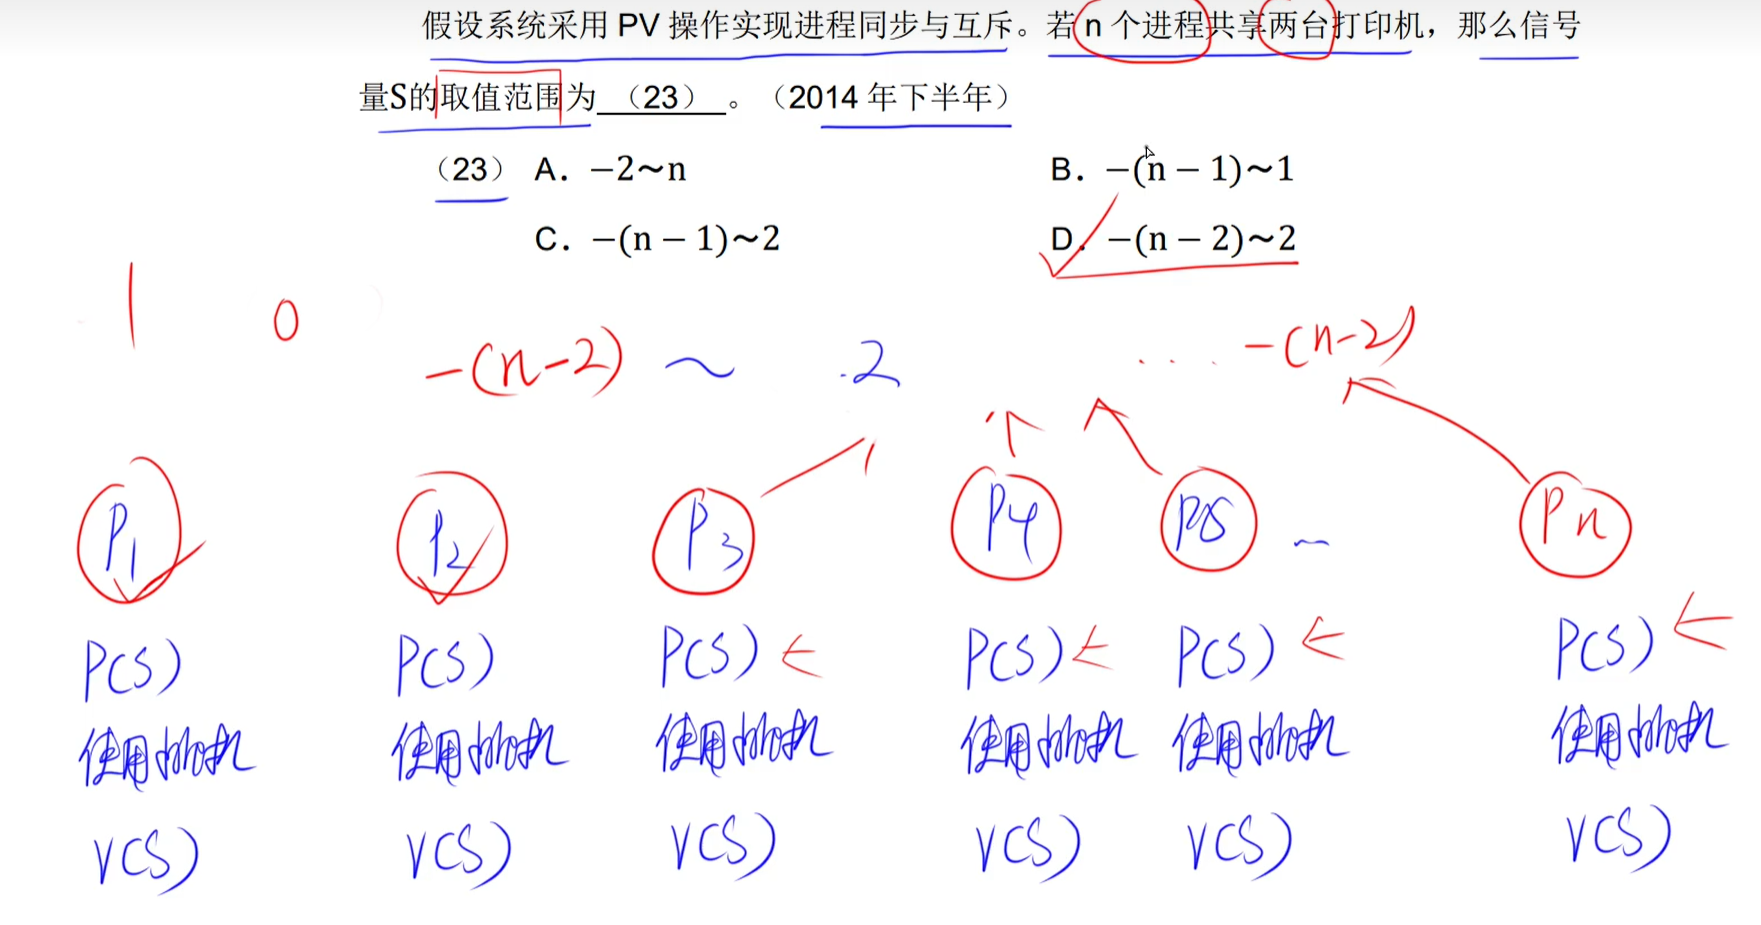 假设系统采用 PV 操作实现进程同步与互斥。若 n 个进程共享两台打印机，那么信号
量S的取值范围为（23）。（2014 年下半年）
（23） A. −2～n B. −(n − 1)～1
C. −(n − 1)～2 D. −(n − 2)～2
1 0
-(n-2) ～ 2 .... -(n-2)
P1 P2 P3 P4 P5 ~ Pn
P(S) P(S) P(S) P(S) P(S) P(S)
使用打印机 使用打印机 使用打印机 使用打印机 使用打印机 使用打印机
V(S) V(S) V(S) V(S) V(S) V(S)